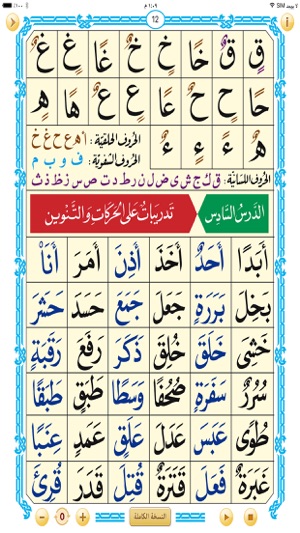 لا يوجد SIM ١:٠٩ م ١٠٠٪
12
قٍ قٌ خًا خٍ خٌ غًا غٍ غٌ
حًا حٍ حٌ عًا عٍ عٌ هًا هٍ
هٌ ءً ءٍ ءٌ
الحُرُوفُ الحَلقِيَّة : أ هـ ع ح غ خ
الحُرُوفُ الشَّفَوِيَّة : ف و ب م
الحُرُوفُ اللِّسَانِيَّة : ق ك ج ش ي ض ل ن ر ط د ت ص س ز ظ ذ ث
الدَّرْسُ السَّادِس تَدرِيبَاتٌ عَلَى الحَرَكَاتِ وَالتَّنْوِين
أَبَدًا أَحَدٌ أَخَذَ أَذِنَ أَمَرَ أَنَا۠
بَخِلَ بَرَرَةٍ جَعَلَ جَمَعَ حَسَدَ حَشَرَ
خَشِيَ خَلَقَ خُلِقَ ذَكَرَ رَفَعَ رَقَبَةٍ
سُرُرٌ سَفَرَةٍ صُحُفًا وَسَطًا طَبَقٍ طَبَقًا
طُوًى عَبَسَ عَدَلَ عَلَقٍ عَمَدٍ عِنَبًا
غَبَرَةٌ فَعَلَ قَتَرَةٌ قُتِلَ قَدَرَ قُرِئَ
− 0 + النسخة الكاملة